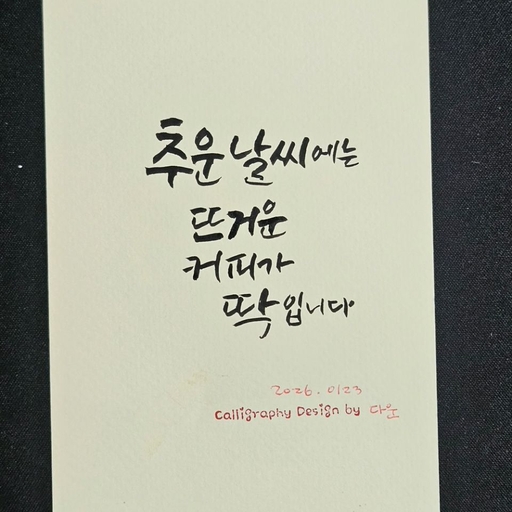 추운 날씨에는
뜨거운
커피가
딱입니다
2026. 0123
Calligraphy Design by 다운